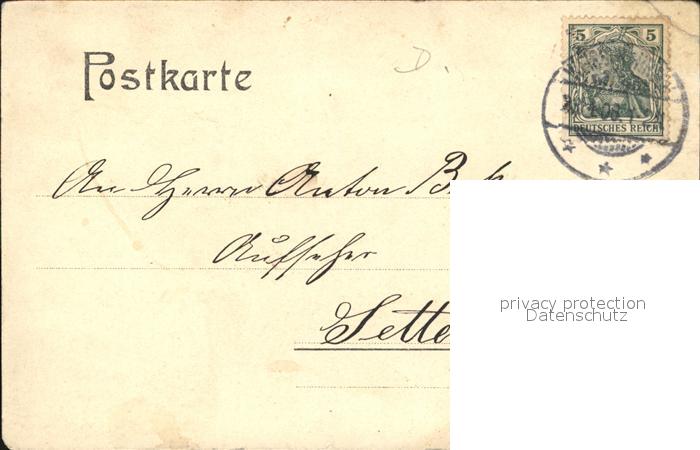 Postkarte
D.
5 5
DEUTSCHES REICH
An Herrn Anton
Aufseher
Sette
privacy protection
Datenschutz